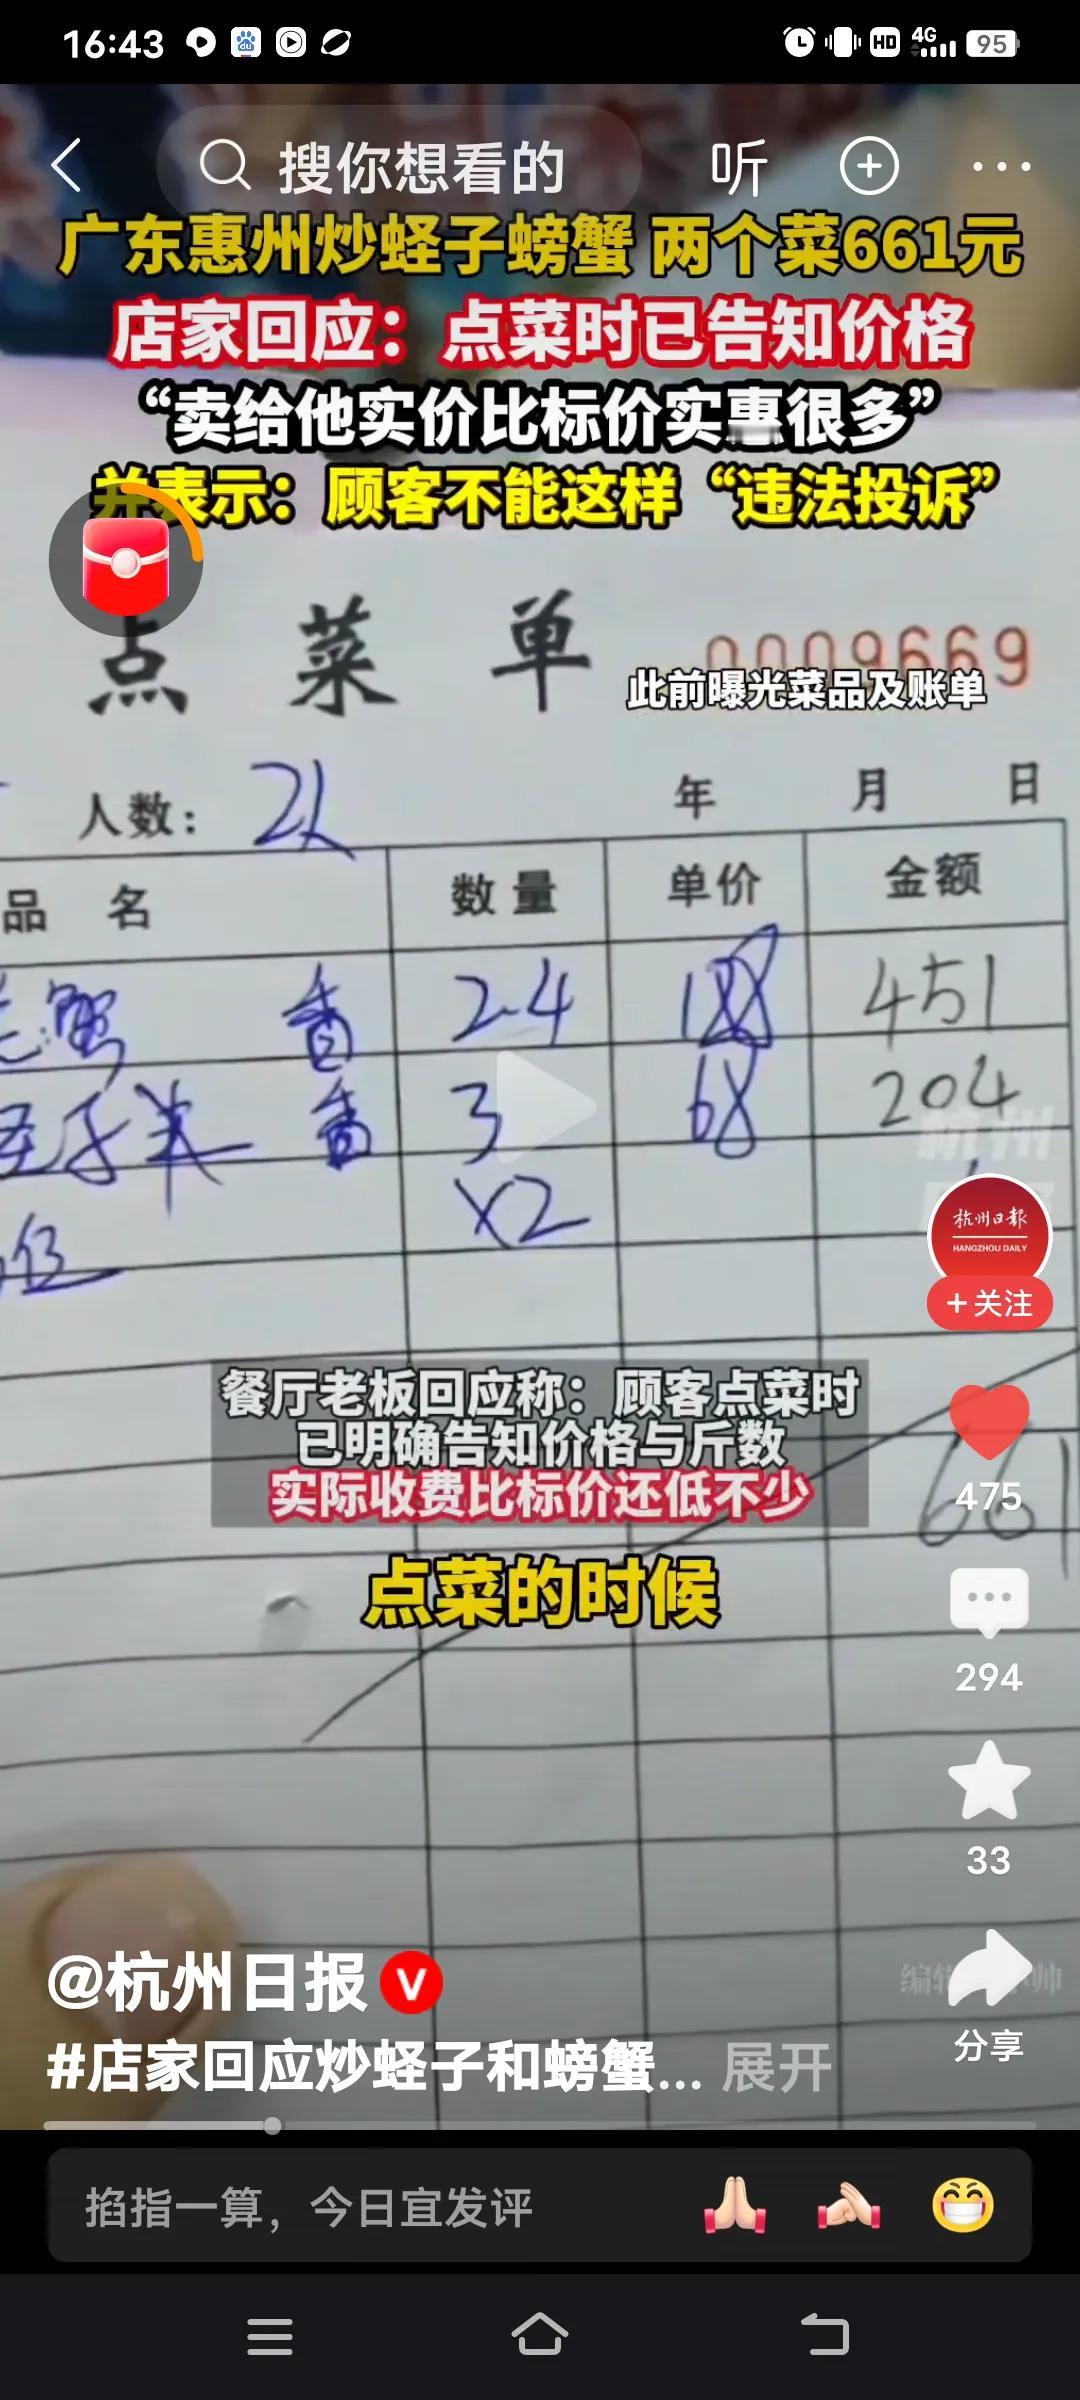 16:43
HD 4G 95
搜你想看的 听
广东惠州炒蛏子螃蟹 两个菜661元
店家回应：点菜时已告知价格
“卖给他实价比标价实惠很多”
并表示：顾客不能这样“违法投诉”
点菜单 0009669
此前曝光菜品及账单
人数： 2人 年 月 日
品名 数量 单价 金额
蟹 香 2.4 188 451
子 香 3 68 204
位 x2
杭州日报
HANGZHOU DAILY
+关注
餐厅老板回应称：顾客点菜时
已明确告知价格与斤数
实际收费比标价还低不少
661
475
点菜的时候
294
33
@杭州日报
分享
#店家回应炒蛏子和螃蟹... 展开
掐指一算，今日宜发评